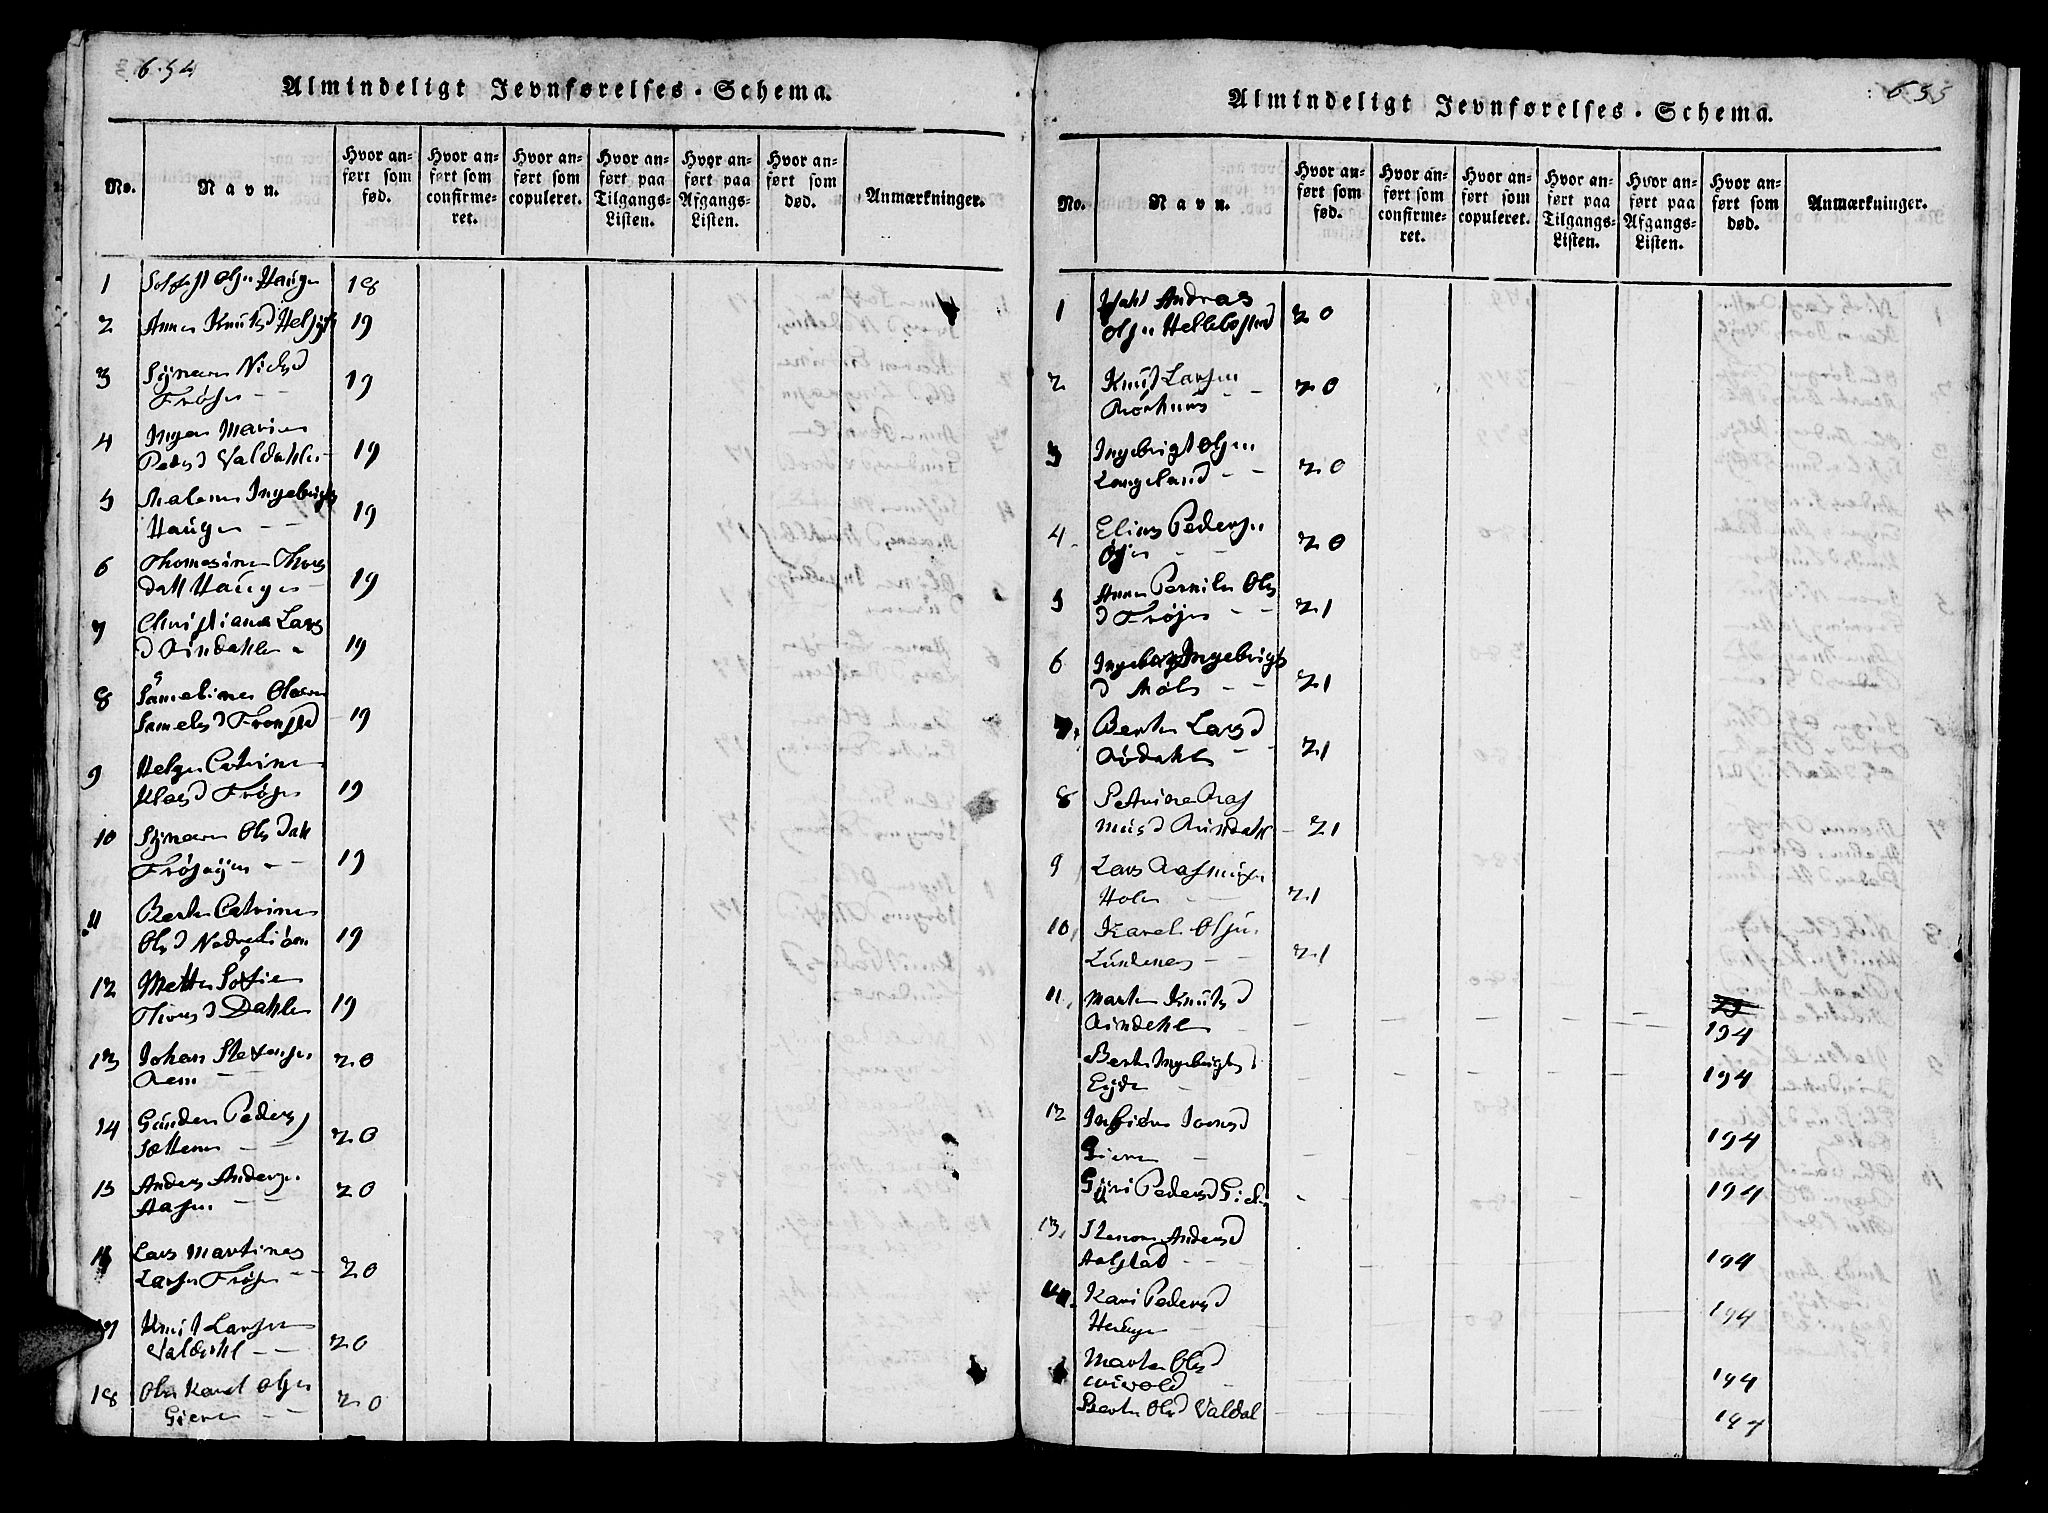 654
Almindeligt Jevnførelses-Schema.
No.
Navn.
Hvor anført som fød.
Hvor anført som confirmeret.
Hvor anført som copuleret.
Hvor anført paa Tilgangs-Listen.
Hvor anført paa Afgangs-Listen.
Hvor anført som død.
Anmærkninger.
1 Olsen Hauge 18
2 Anne Knutsd 19
3 Synneve Nielsd
Frøise 19
4 Inger Marie
Pedersd Valdahle 19
5 Malene Ingebrigts
Hauge 19
6 Thomasine Thors
datt Hauge 19
7 Christiana Lars
d Rindahle 19
8 Sameline Olave
Samelsd 19
9 Helge Catrine
Klasd Frøise 19
10 Synneve Olsdatt
Frøsøyen 19
11 Berthe Catrine
Olsd Nedrelien 19
12 Mette Sofie
Thoresd Dahle 19
13 Johan Steffensen
Rem 20
14 Guden Peders
Sætterne 20
15 Anders Andersen
Aasen 20
16 Lars Martinus
Larsen Frøise 20
17 Knut Larsen
Valdahl 20
18 Ole Karel Olsen
Giere 20
655
Almindeligt Jevnførelses-Schema.
No.
Navn.
Hvor anført som fød.
Hvor anført som confirmeret.
Hvor anført som copuleret.
Hvor anført paa Tilgangs-Listen.
Hvor anført paa Afgangs-Listen.
Hvor anført som død.
Anmærkninger.
1 Andreas
Olsen Hellebostad 20
2 Knut Larsen
Rørhuus 20
3 Ingebrigt Olsen
Langeland 20
4 Elias Pedersen
Øye 20
5 Anne Pernille Ols
d Frøise 21
6 Ingeborg Ingebrigts
d Møls 21
7 Berthe Larsd
Rødahle 21
8 Petrine Ras
musd Rindahl 21
9 Lars Rasmusen
Hole 21
10 Karel Olsen
Lundenes 21
11 Marte Knutsd
Rindahle 194
Berthe Ingebrigtsd
Eide 194
12 Joensd
Giere 194
Gyri Pedersd 194
13 Andersd
Aalstad 194
14 Kari Pedersd
Hauge 194
Marthe Olsd
194
Berthe Olsd Valdal 194